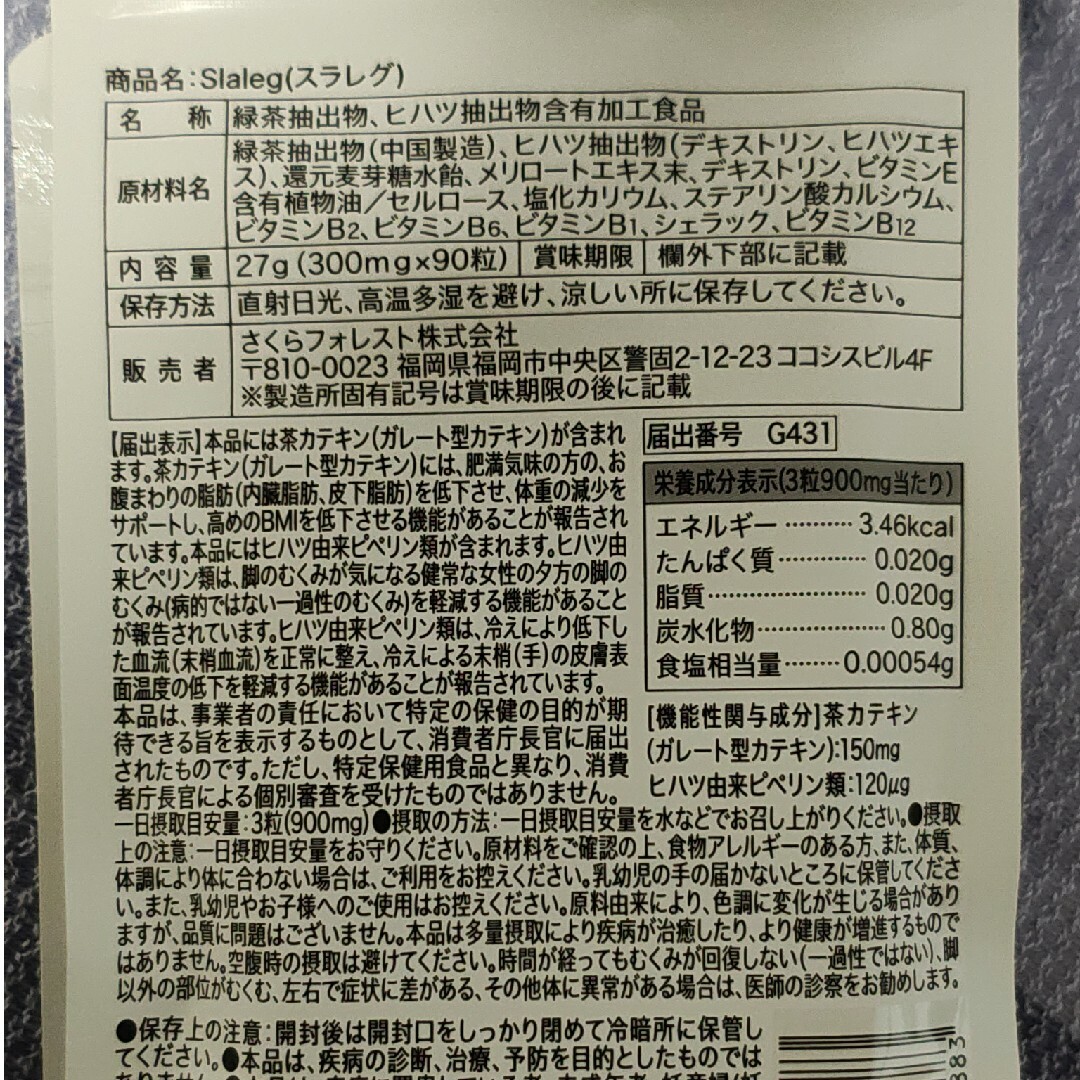 商品名:Slaleg(スラレグ)
名 称 緑茶抽出物、ヒハツ抽出物含有加工食品
原材料名 緑茶抽出物(中国製造)、ヒハツ抽出物(デキストリン、ヒハツエキ
ス)、還元麦芽糖水飴、メリロートエキス末、デキストリン、ビタミンE
含有植物油/セルロース、塩化カリウム、ステアリン酸カルシウム、
ビタミンB2、ビタミンB6、ビタミンB1、シェラック、ビタミンB12
内容量 27g(300mg×90粒) 賞味期限 欄外下部に記載
保存方法 直射日光、高温多湿を避け、涼しい所に保存してください。
販売者 さくらフォレスト株式会社
〒810-0023 福岡県福岡市中央区警固2-12-23 ココシスビル4F
※製造所固有記号は賞味期限の後に記載
【届出表示】本品には茶カテキン(ガレート型カテキン)が含まれ
ます。茶カテキン(ガレート型カテキン)には、肥満気味の方の、お
腹まわりの脂肪(内臓脂肪、皮下脂肪)を低下させ、体重の減少を
サポートし、高めのBMIを低下させる機能があることが報告され
ています。本品にはヒハツ由来ピペリン類が含まれます。ヒハツ由
来ピペリン類は、脚のむくみが気になる健常な女性の夕方の脚の
むくみ(病的ではない一過性のむくみ)を軽減する機能があること
が報告されています。ヒハツ由来ピペリン類は、冷えにより低下し
た血流(末梢血流)を正常に整え、冷えによる末梢(手)の皮膚表
面温度の低下を軽減する機能があることが報告されています。
本品は、事業者の責任において特定の保健の目的が期
待できる旨を表示するものとして、消費者庁長官に届出
されたものです。ただし、特定保健用食品と異なり、消費
者庁長官による個別審査を受けたものではありません。
届出番号 G431
栄養成分表示(3粒900mg当たり)
エネルギー ………… 3.46kcal
たんぱく質 ………… 0.020g
脂質 ………………… 0.020g
炭水化物 …………… 0.80g
食塩相当量 ……… 0.00054g
[機能性関与成分]茶カテキン
(ガレート型カテキン):150mg
ヒハツ由来ピペリン類:120μg
一日摂取目安量:3粒(900mg)●摂取の方法:一日摂取目安量を水などでお召し上がりください。●摂取
上の注意:一日摂取目安量をお守りください。原材料をご確認の上、食物アレルギーのある方、また、体質、
体調により体に合わない場合は、ご利用をお控えください。乳幼児の手の届かないところに保管してくださ
い。また、乳幼児やお子様へのご使用はお控えください。原料由来により、色調に変化が生じる場合があり
ますが、品質に問題はございません。本品は多量摂取により疾病が治癒したり、より健康が増進するもので
はありません。空腹時の摂取は避けてください。時間が経ってもむくみが回復しない(一過性ではない)、脚
以外の部位がむくむ、左右で症状に差がある、その他体に異常がある場合は、医師の診察をお勧めします。
●保存上の注意:開封後は開封口をしっかり閉めて冷暗所に保管し
てください。●本品は、疾病の診断、治療、予防を目的としたものでは